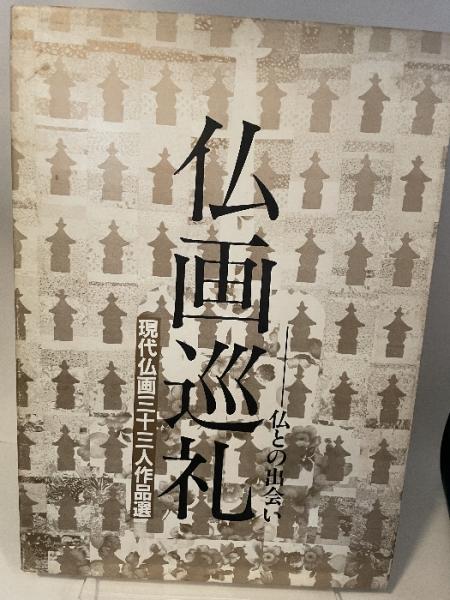 仏画巡礼
──仏との出会い
現代仏画三十三人作品選